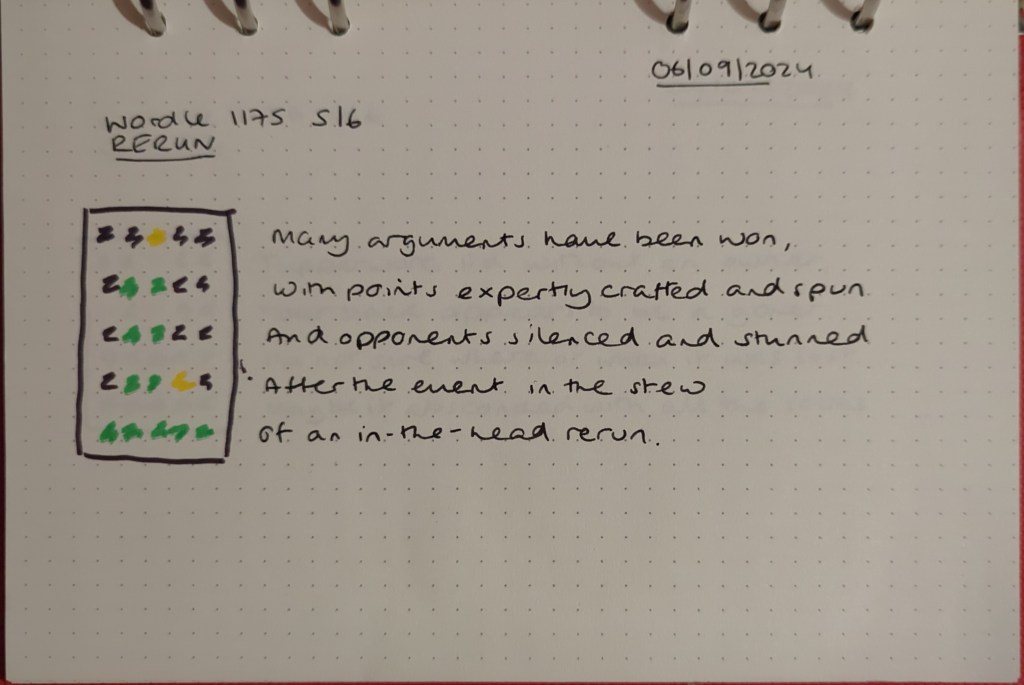 06/09/2024
Wordle 1175 5/6
RERUN
Many arguments have been won,
With points expertly crafted and spun
And opponents silenced and stunned
After the event in the stew
Of an in-the-head rerun.